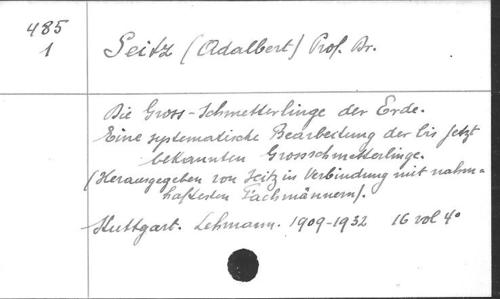 485
1
Seitz (Adalbert) Prof. Dr.
Die Gross-Schmetterlinge der Erde.
Eine systematische Bearbeitung der bis jetzt
bekannten Grossschmetterlinge.
(Herausgegeben von Seitz in Verbindung mit nahm-
haftesten Fachmännern).
Stuttgart. Lehmann. 1909-1932 16 vol 4°